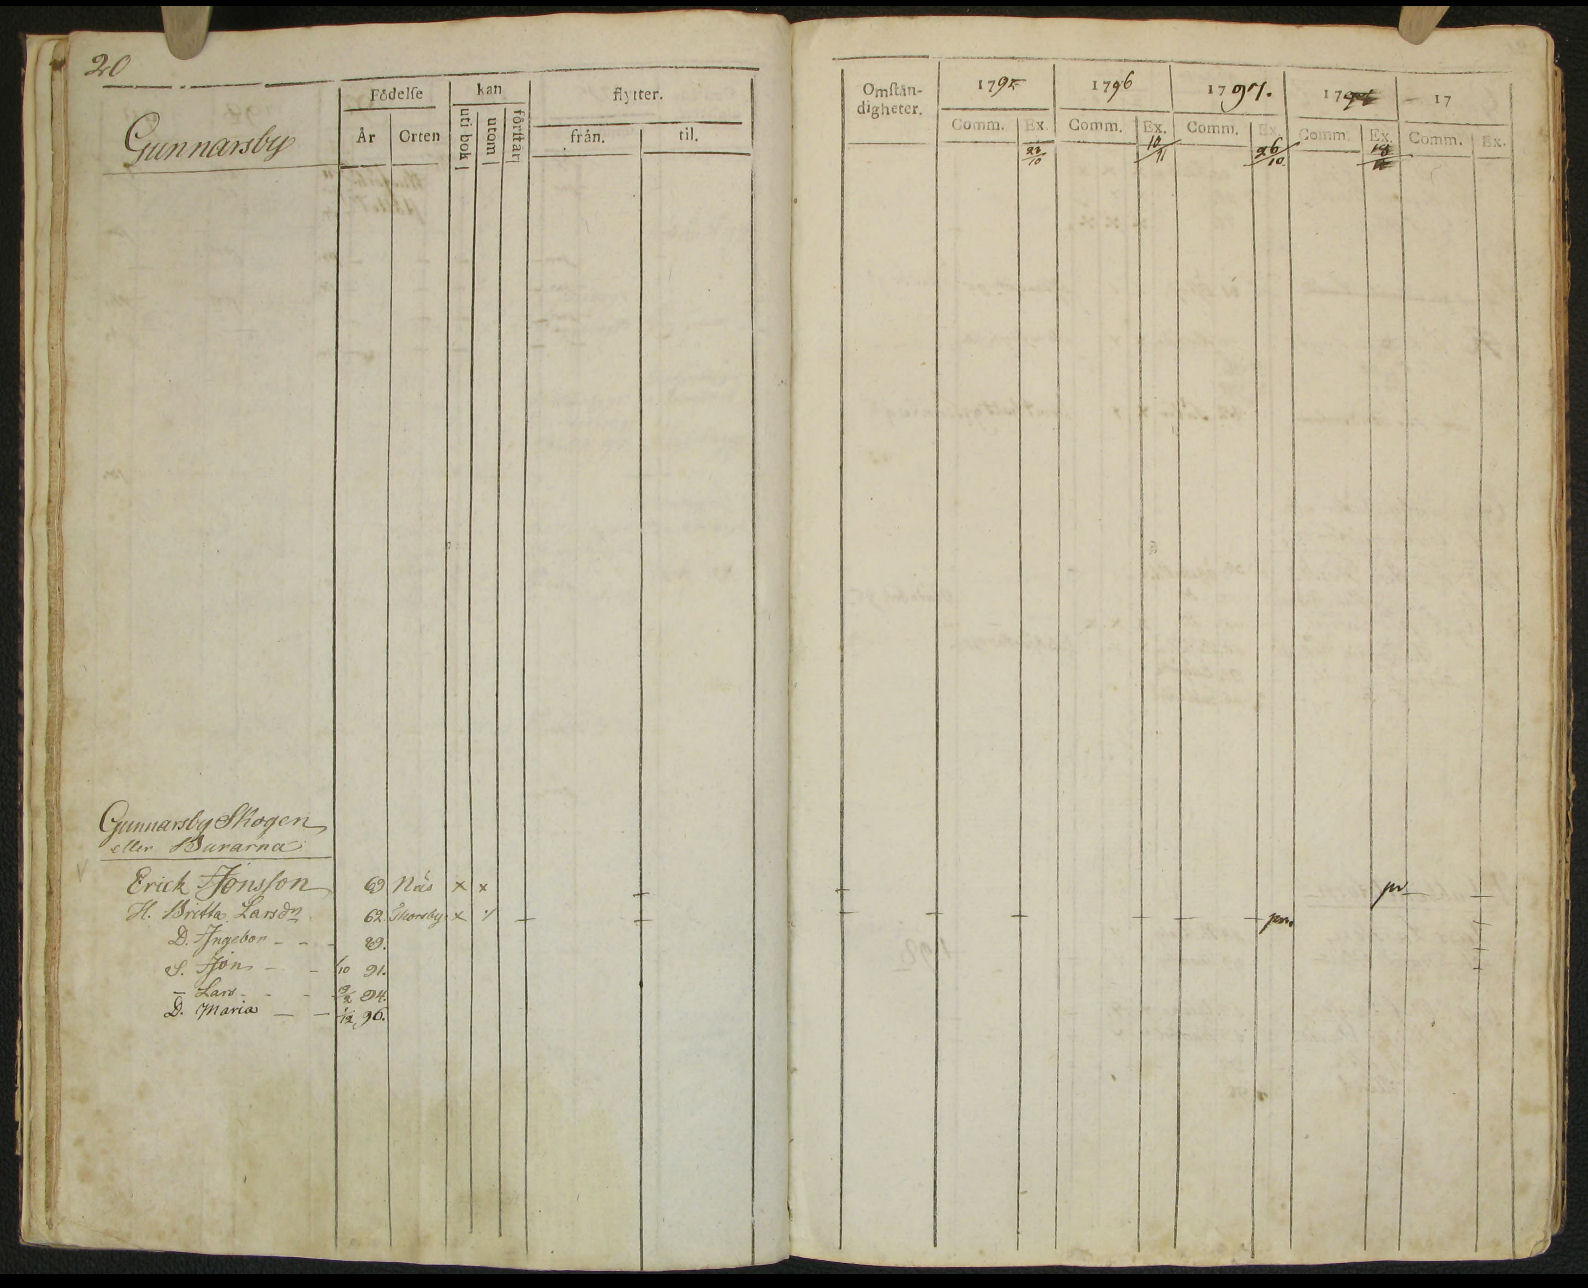 20
Gunnarsby
Födelse kan flytter.
År Orten uti bok utom förstår från. til.
Omstän-
digheter.
1795 1796 1797. 17 17
Comm. Ex. Comm. Ex. Comm. Ex. Comm. Ex. Comm. Ex.
23/10 10/11 26/10
Gunnarsby Skogen
eller Burarna
Erick Jonsson 69 Näs x x pr
H. Britta Larsdr 62. Skorsby x pr.
D. Ingebor - - - 89.
S. Jon - - /10 91.
- Lars - - - 94.
D. Maria - - /12 96.